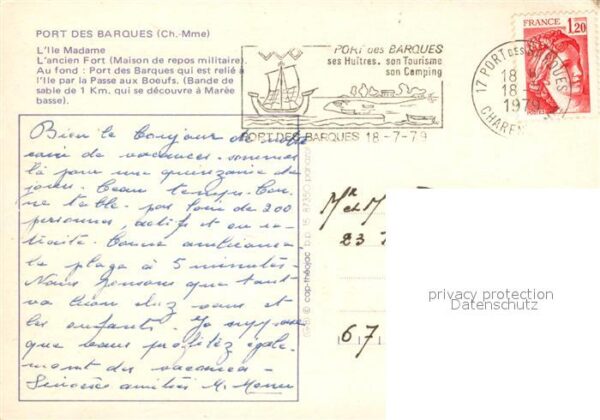 PORT DES BARQUES (Ch.-Mme)
L'Ile Madame
L'ancien Fort (Maison de repos militaire).
Au fond : Port des Barques qui est relié à
l'Ile par la Passe aux Boeufs. (Bande de
sable de 1 Km. qui se découvre à Marée
basse).
PORT des BARQUES
ses Huîtres. son Tourisme
son Camping
PORT DES BARQUES 18-7-79
17 PORT des BARQUES
18
18-
1979
CHAREN
FRANCE
1,20
POSTES
Bien le bonjour de notre
coin de vacances. sommes
là pour une quinzaine de
jours. Beau temps. Bon
ne table. pas loin de 200
personnes, actifs et en re
traite. Bonne ambiance
la plage à 5 minutes.
Nous pensons que tout
va bien chez vous et
les enfants. Je suppose
que vous profitez égale
ment des vacances.
Sincères amitiés M.
cap-théojac
Mr et M
23
67
privacy protection
Datenschutz